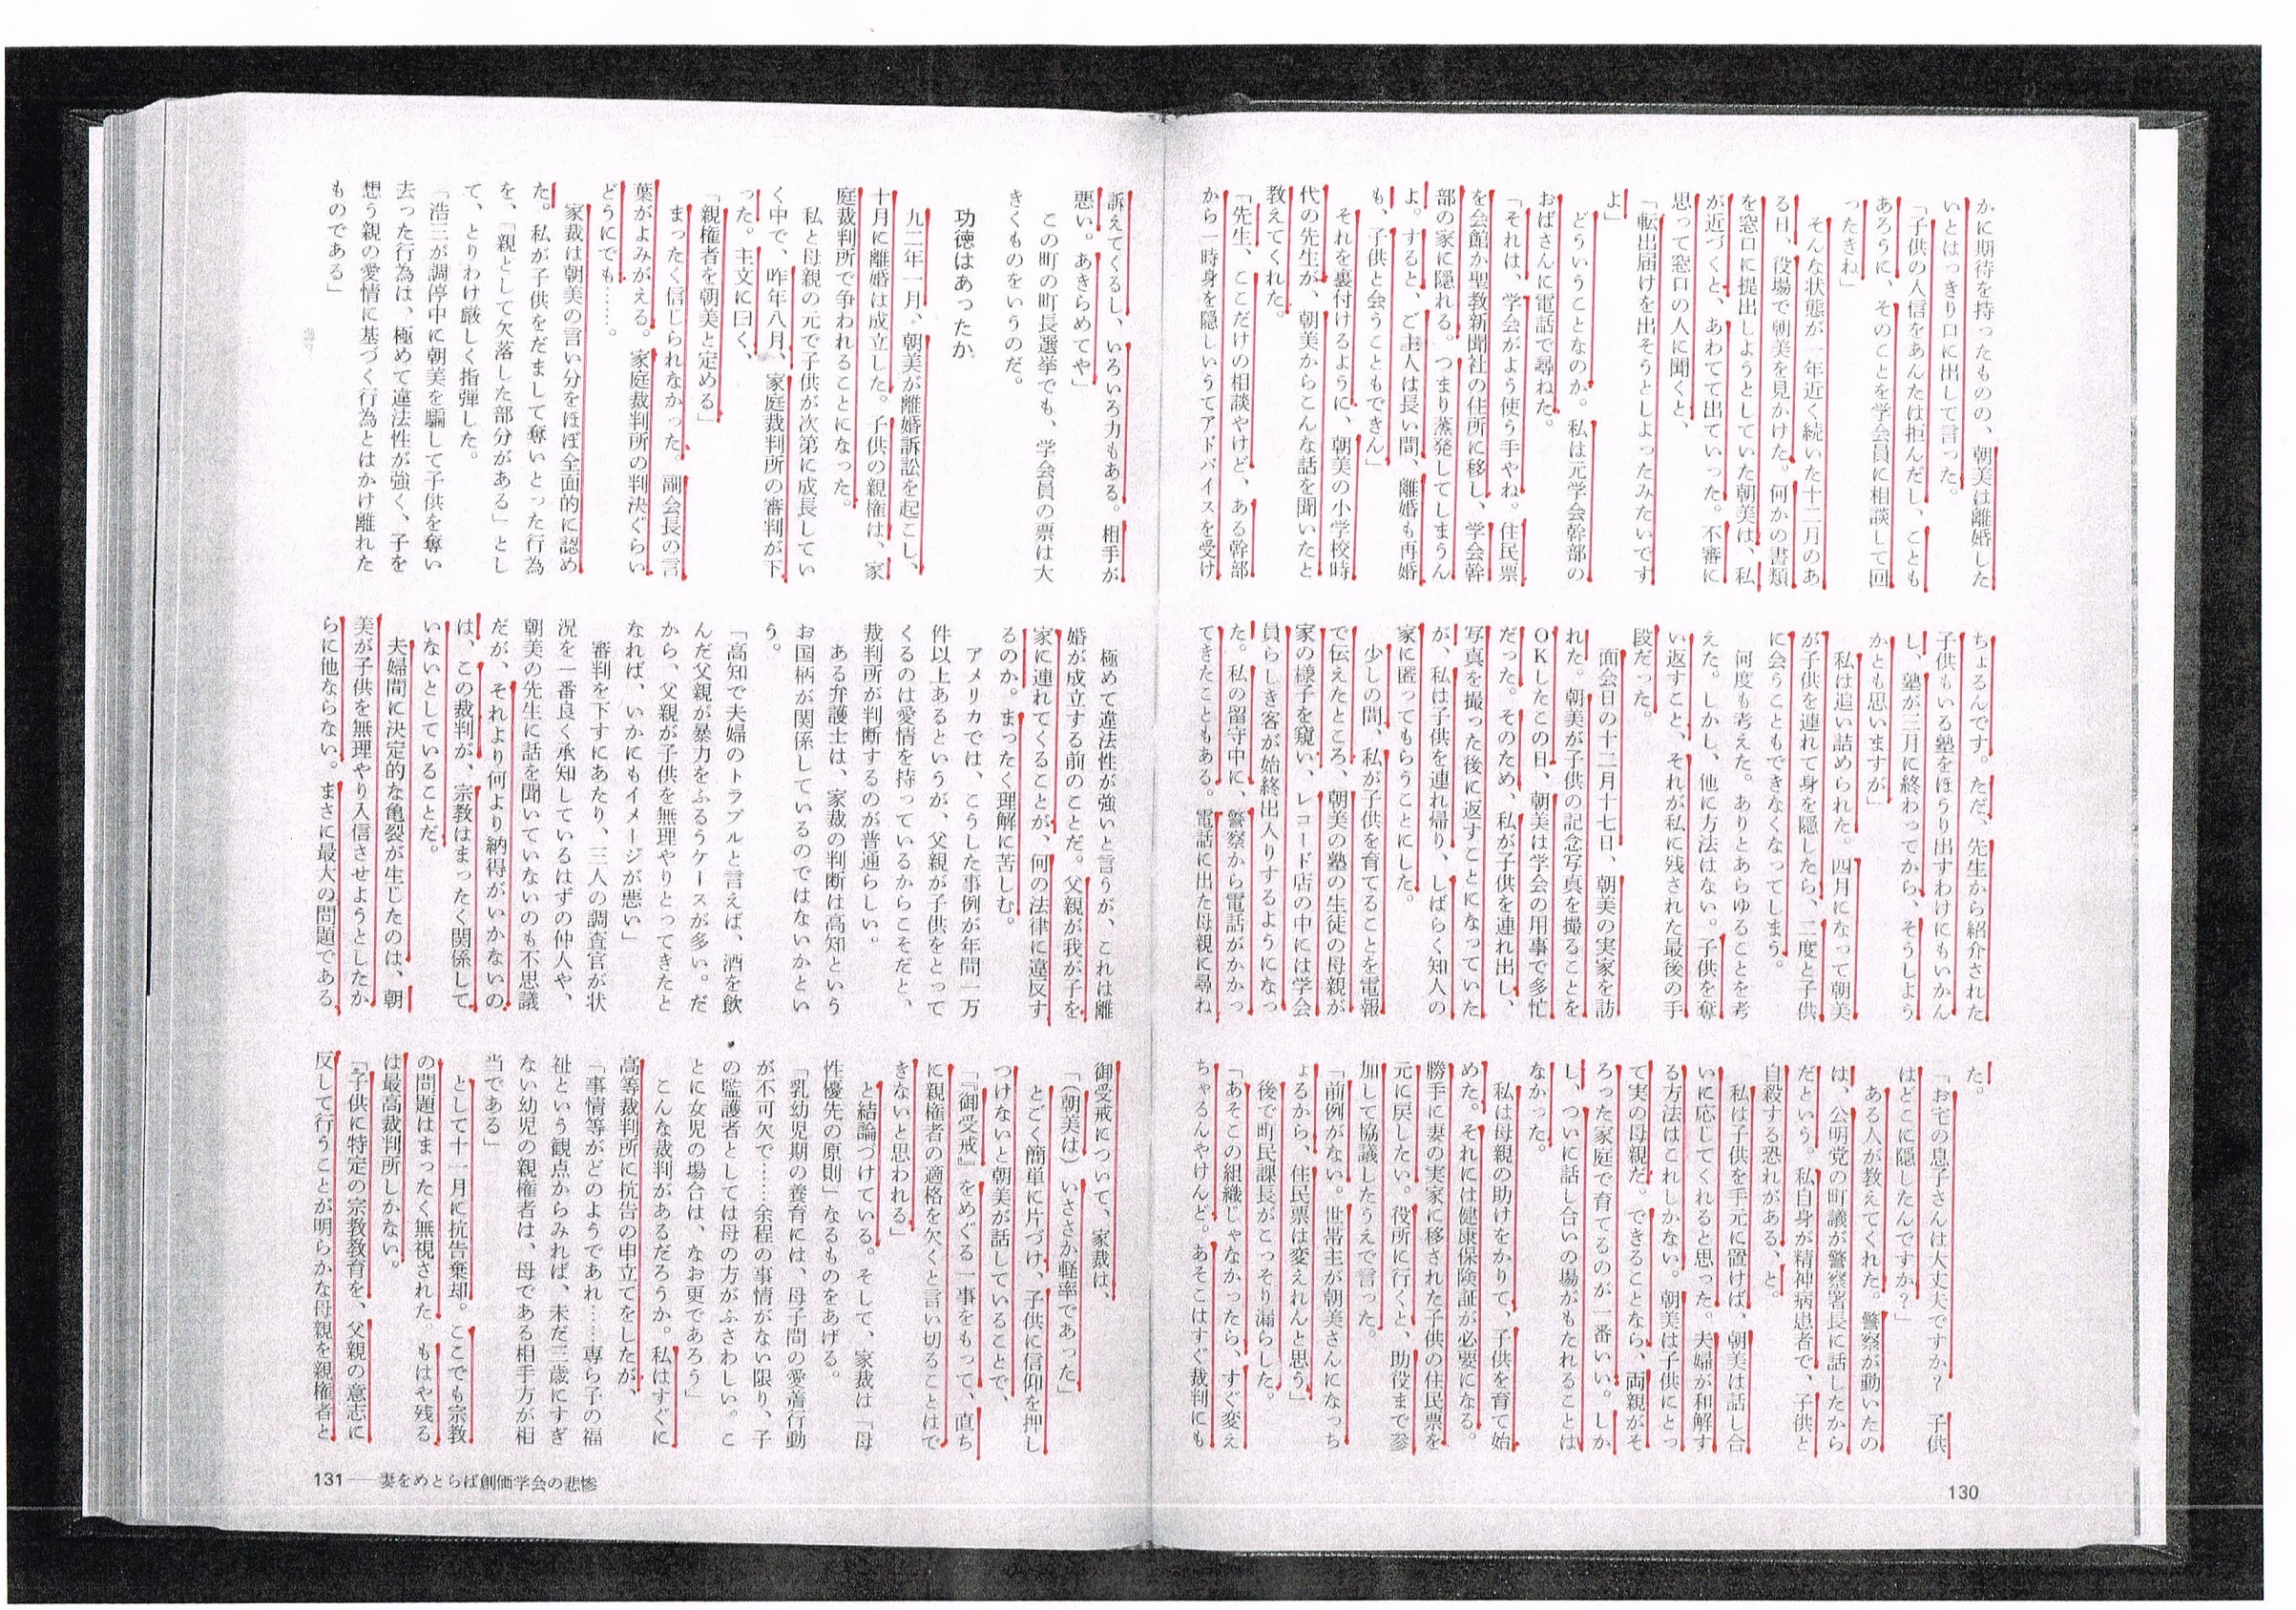 かに期待を持ったものの、朝美は離婚した
いとはっきり口に出して言った。
「子供の入信をあんたは拒んだし、ことも
あろうに、そのことを学会員に相談して回
ったきね」
そんな状態が一年近く続いた十二月のあ
る日、役場で朝美を見かけた。何かの書類
を窓口に提出しようとしていた朝美は、私
が近づくと、あわてて出ていった。不審に
思って窓口の人に聞くと、
「転出届けを出そうとしよったみたいです
よ」
どういうことなのか。私は元学会幹部の
おばさんに電話で尋ねた。
「それは、学会がよう使う手やね。住民票
を会館か聖教新聞社の住所に移し、学会幹
部の家に隠れる。つまり蒸発してしまうん
よ。すると、ご主人は長い間、離婚も再婚
も、子供と会うこともできん」
それを裏付けるように、朝美の小学校時
代の先生が、朝美からこんな話を聞いたと
教えてくれた。
「先生、ここだけの相談やけど、ある幹部
から一時身を隠しいうてアドバイスを受け
ちょるんです。ただ、先生から紹介された
子供もいる塾をほうり出すわけにもいかん
し、塾が三月に終わってから、そうしよう
かとも思いますが」
私は追い詰められた。四月になって朝美
が子供を連れて身を隠したら、二度と子供
に会うこともできなくなってしまう。
何度も考えた。ありとあらゆることを考
えた。しかし、他に方法はない。子供を奪
い返すこと、それが私に残された最後の手
段だった。
面会日の十二月十七日、朝美の実家を訪
れた。朝美が子供の記念写真を撮ることを
OKしたこの日、朝美は学会の用事で多忙
だった。そのため、私が子供を連れ出し、
写真を撮った後に返すことになっていた
が、私は子供を連れ帰り、しばらく知人の
家に匿ってもらうことにした。
少しの間、私が子供を育てることを電報
で伝えたところ、朝美の塾の生徒の母親が
家の様子を窺い、レコード店の中には学会
員らしき客が始終出入りするようになっ
た。私の留守中に、警察から電話がかかっ
てきたこともある。電話に出た母親に尋ね
た。
「お宅の息子さんは大丈夫ですか? 子供
はどこに隠したんですか?」
ある人が教えてくれた。警察が動いたの
は、公明党の町議が警察署長に話したから
だという。私自身が精神病患者で、子供と
自殺する恐れがある、と。
私は子供を手元に置けば、朝美は話し合
いに応じてくれると思った。夫婦が和解す
る方法はこれしかない。朝美は子供にとっ
て実の母親だ。できることなら、両親がそ
ろった家庭で育てるのが一番いい。しか
し、ついに話し合いの場がもたれることは
なかった。
私は母親の助けをかりて、子供を育て始
めた。それには健康保険証が必要になる。
勝手に妻の実家に移された子供の住民票を
元に戻したい。役所に行くと、助役まで参
加して協議したうえで言った。
「前例がない。世帯主が朝美さんになっち
ょるから、住民票は変えれんと思う」
後で町民課長がこっそり漏らした。
「あそこの組織じゃなかったら、すぐ変え
ちゃるんやけんど。あそこはすぐ裁判にも
130
訴えてくるし、いろいろ力もある。相手が
悪い。あきらめてや」
この町の町長選挙でも、学会員の票は大
きくものをいうのだ。
功徳はあったか
九二年一月、朝美が離婚訴訟を起こし、
十月に離婚は成立した。子供の親権は、家
庭裁判所で争われることになった。
私と母親の元で子供が次第に成長してい
く中で、昨年八月、家庭裁判所の審判が下
った。主文に曰く、
「親権者を朝美と定める」
まったく信じられなかった。副会長の言
葉がよみがえる。家庭裁判所の判決ぐらい
どうにでも……。
家裁は朝美の言い分をほぼ全面的に認め
た。私が子供をだまして奪いとった行為
を、「親として欠落した部分がある」とし
て、とりわけ厳しく指弾した。
「浩三が調停中に朝美を騙して子供を奪い
去った行為は、極めて違法性が強く、子を
想う親の愛情に基づく行為とはかけ離れた
ものである」
極めて違法性が強いと言うが、これは離
婚が成立する前のことだ。父親が我が子を
家に連れてくることが、何の法律に違反す
るのか。まったく理解に苦しむ。
アメリカでは、こうした事例が年間一万
件以上あるというが、父親が子供をとって
くるのは愛情を持っているからこそだと、
裁判所が判断するのが普通らしい。
ある弁護士は、家裁の判断は高知という
お国柄が関係しているのではないかとい
う。
「高知で夫婦のトラブルと言えば、酒を飲
んだ父親が暴力をふるうケースが多い。だ
から、父親が子供を無理やりとってきたと
なれば、いかにもイメージが悪い」
審判を下すにあたり、三人の調査官が状
況を一番良く承知しているはずの仲人や、
朝美の先生に話を聞いていないのも不思議
だが、それより何より納得がいかないの
は、この裁判が、宗教はまったく関係して
いないとしていることだ。
夫婦間に決定的な亀裂が生じたのは、朝
美が子供を無理やり入信させようとしたか
らに他ならない。まさに最大の問題である
御受戒について、家裁は、
「(朝美は)いささか軽率であった」
とごく簡単に片づけ、子供に信仰を押し
つけないと朝美が話していることで、
「『御受戒』をめぐる一事をもって、直ち
に親権者の適格を欠くと言い切ることはで
きないと思われる」
と結論づけている。そして、家裁は「母
性優先の原則」なるものをあげる。
「乳幼児期の養育には、母子間の愛着行動
が不可欠で……余程の事情がない限り、子
の監護者としては母の方がふさわしい。こ
とに女児の場合は、なお更であろう」
こんな裁判があるだろうか。私はすぐに
高等裁判所に抗告の申立てをしたが、
「事情等がどのようであれ……専ら子の福
祉という観点からみれば、未だ三歳にすぎ
ない幼児の親権者は、母である相手方が相
当である」
として十一月に抗告棄却。ここでも宗教
の問題はまったく無視された。もはや残る
は最高裁判所しかない。
「子供に特定の宗教教育を、父親の意志に
反して行うことが明らかな母親を親権者と
131──妻をめとらば創価学会の悲惨